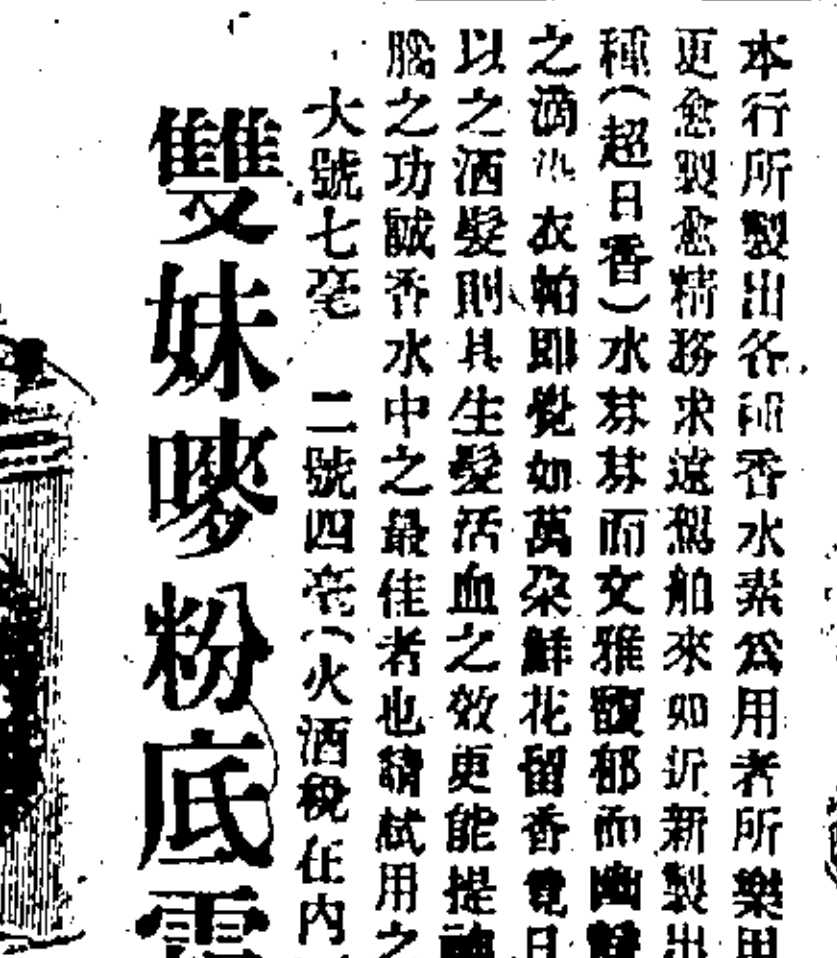 本行所製出各種香水素為用者所樂用
更愈製愈精務求遠駕舶來如近新製出
種(超日香)水芬芬而文雅馥郁而幽
之滴衣帕即覺如萬朵鮮花留香竟日
以之洒髮則具生髮活血之效更能提神
腦之功誠香水中之最佳者也請試用之
大號七毫 二號四毫(火酒稅在內
雙妹嘜粉底雪